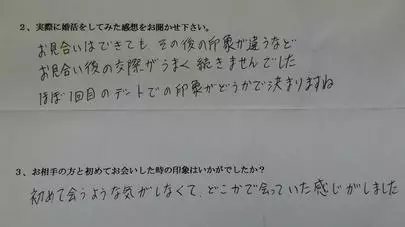 2、実際に婚活をしてみた感想をお聞かせ下さい。
お見合いはできても、その後の印象が違うなど
お見合い後の交際がうまく続きませんでした
ほぼ1回目のデートでの印象がどうかで決まりますね
3、お相手の方と初めてお会いした時の印象はいかがでしたか？
初めて会うような気がしなくて、どこかで会っていた感じがしました